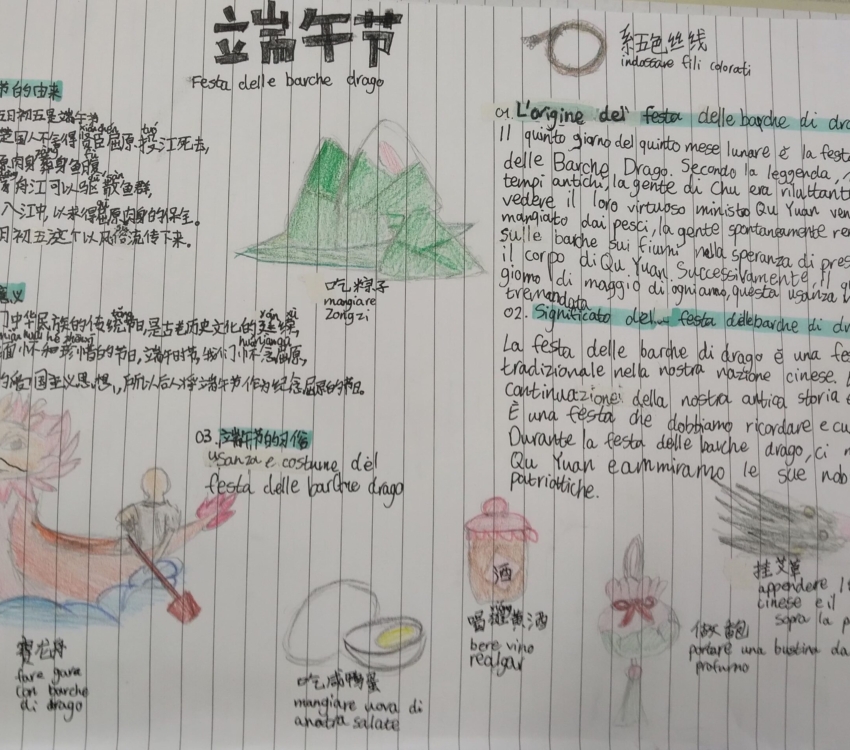 端午节
Festa delle barche drago
系五色丝线
indossare fili colorati
节的由来
五月初五是端午节
楚国人不舍得贤臣屈原投江死去,
原肉身葬身鱼腹
舟江可以驱散鱼群,
入江中,以来得屈原肉身的保全。
月初五这个以风俗流传下来。
意义
门中华民族的传统节,是古老历史文化的延续,
面怀和珍惜的节日,端午时节,我们怀念屈原,
的爱国主义思想,所以后人将端午节作为纪念屈原的节日。
吃粽子
mangiare
zongzi
01. L'origine del festa delle barche di dra
Il quinto giorno del quinto mese lunare è la festa
delle Barche Drago. Secondo la leggenda,
tempi antichi, la gente di Chu era riluttant
vedere il loro virtuoso ministro Qu Yuan ven
mangiato dai pesci, la gente spontaneamente re
sulle barche sui fiumi nella speranza di pres
il corpo di Qu Yuan. Successivamente, il q
giorno di maggio di ogni anno, questa usanza
tremandata
02. Significato del festa delle barche di dr
La festa delle barche di drago è una fes
tradizionale nella nostra nazione cinese.
continuazione della nostra antica storia e
È una festa che dobbiamo ricordare e cu
Durante la festa delle barche drago, ci
Qu Yuan e ammiramo le sue nob
patriottiche.
03. 端午节的习俗
usanza e costume del
festa delle barche drago
赛龙舟
fare gara
con barche
di drago
吃咸鸭蛋
mangiare uova di
anatra salate
酒
喝雄黄酒
bere vino
realgar
做香包
portare una bustina da
profumo
挂艾草
appendere l
cinese e il
sopra la p